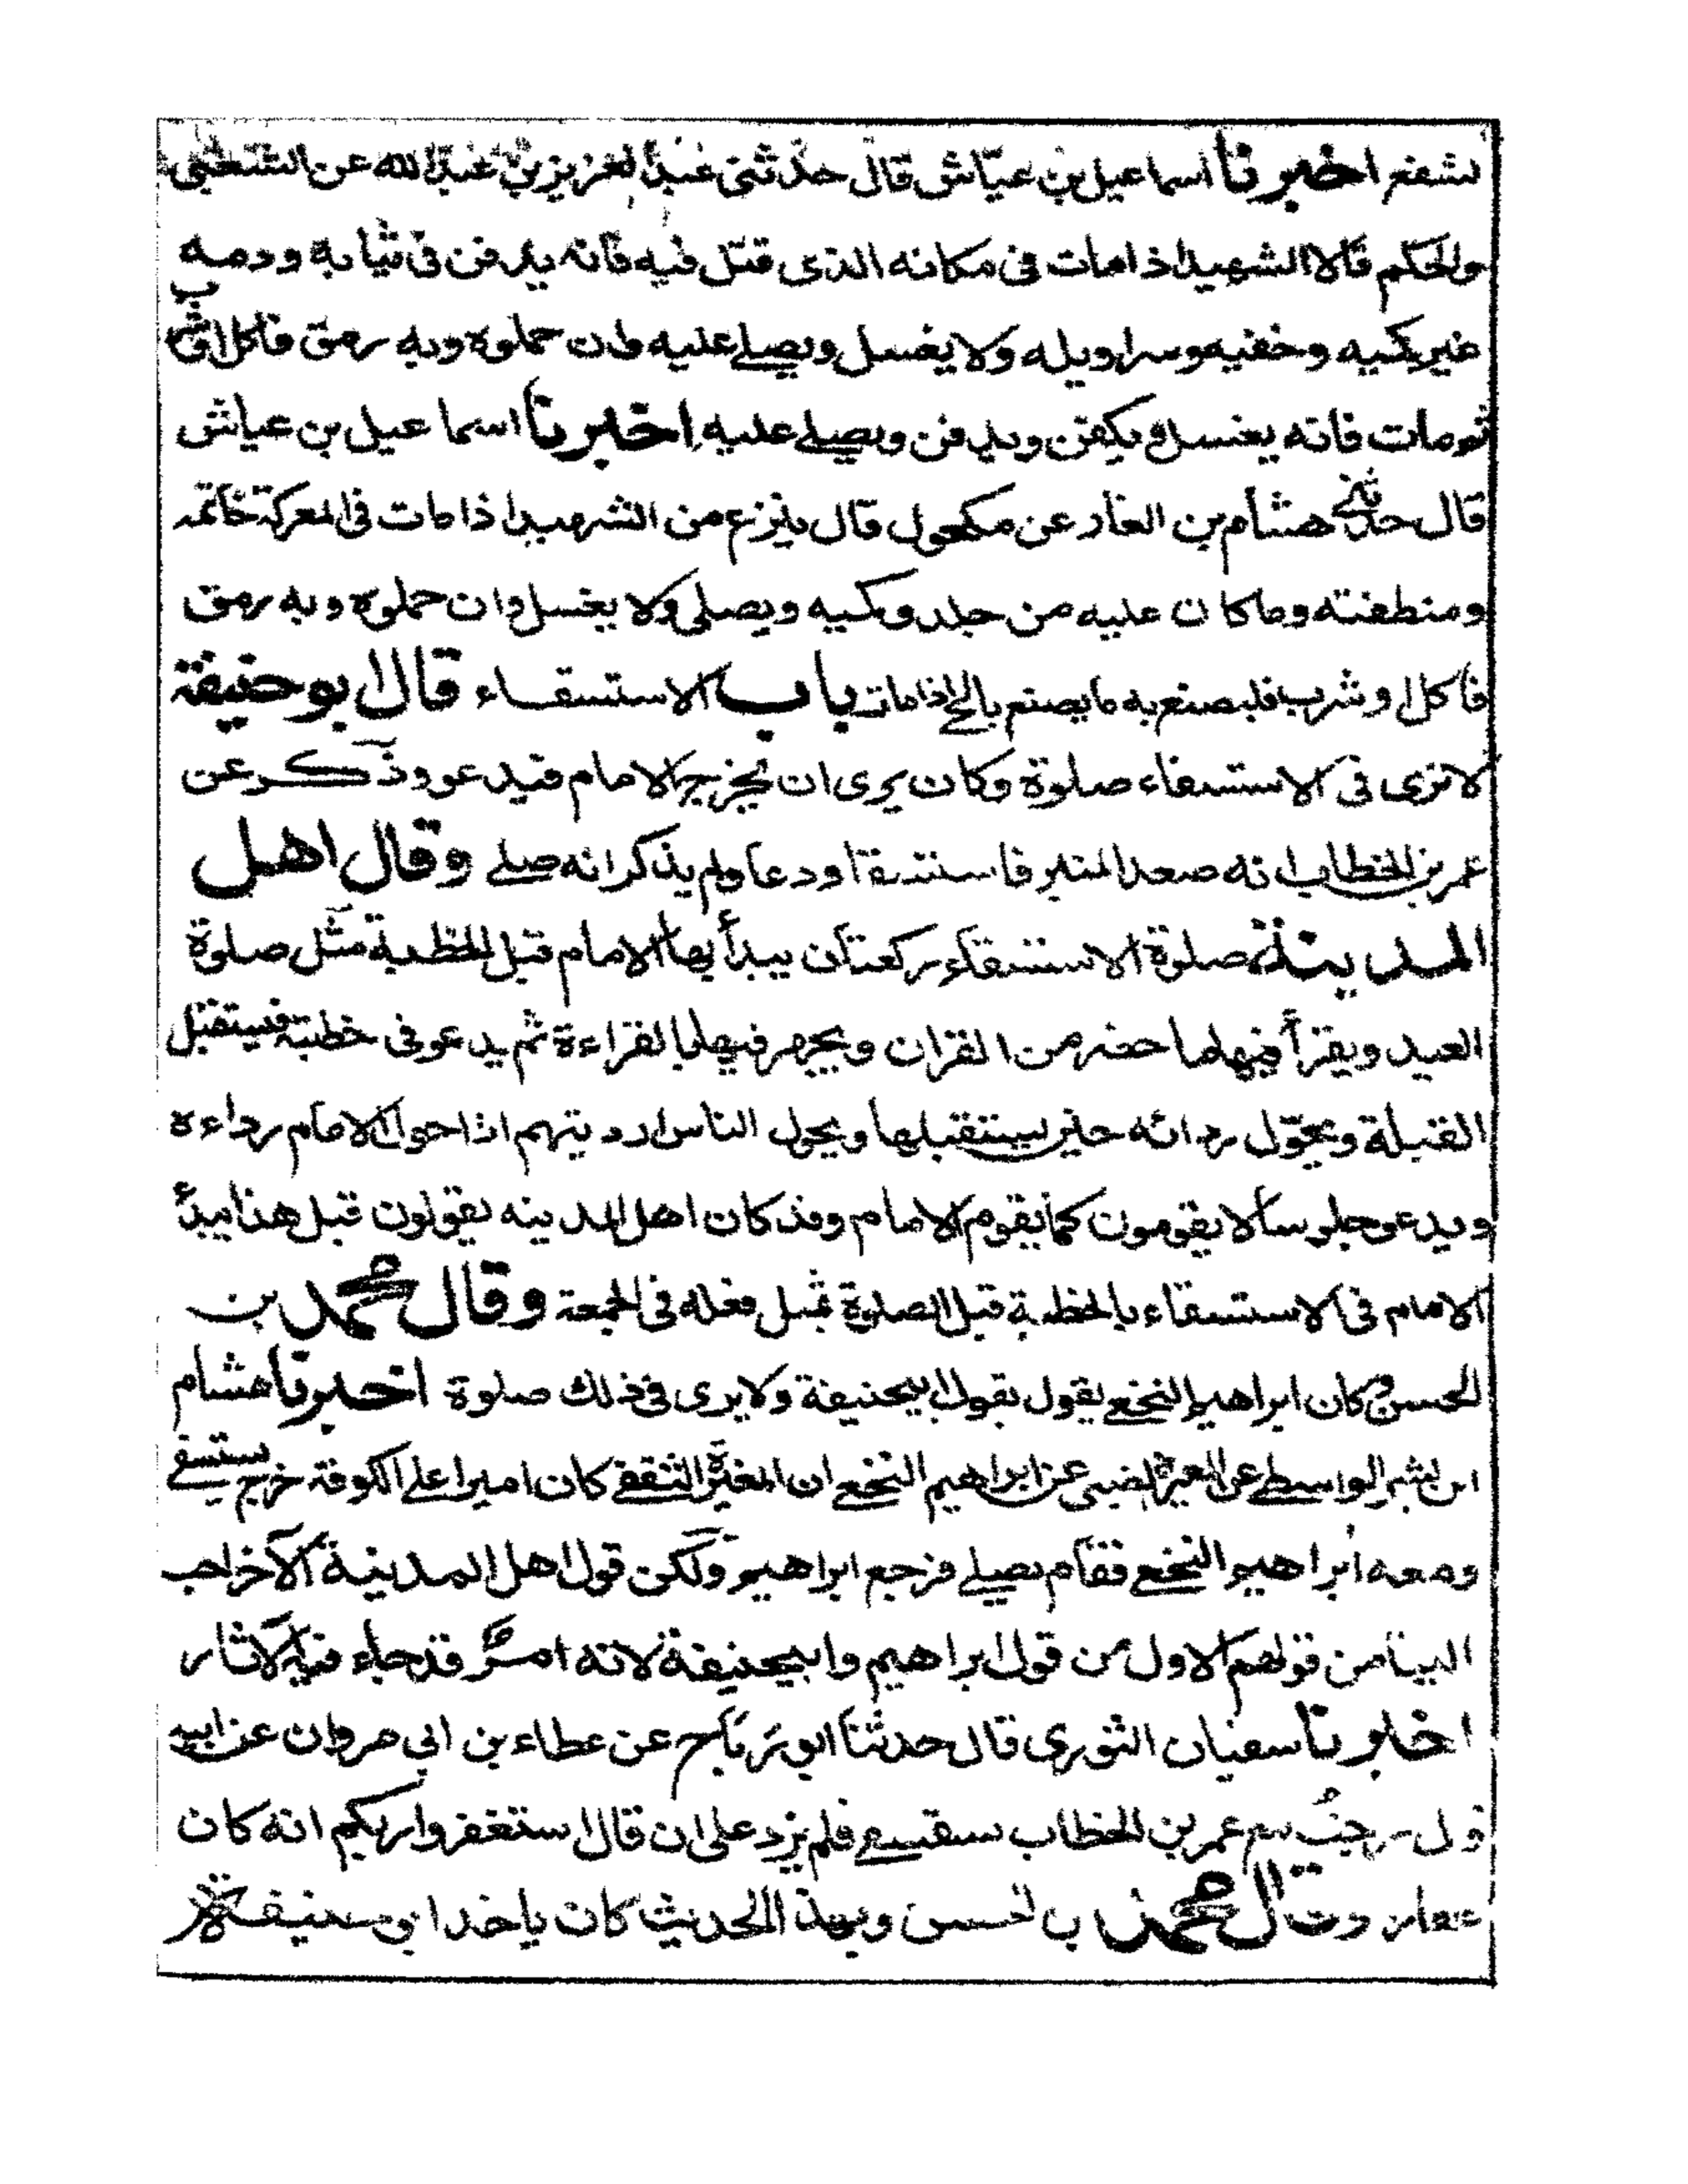 اخبرنا اسماعيل بن عياش قال حدثنى عبد العزيز بن عبد الله عن الشعبى
والحكم قالا الشهيد اذا مات فى مكانه الذى قتل فيه فانه يدفن فى ثيابه ودمه
غير كميه وخفيه وسراويله ولا يغسل ويصلے عليه وان حملوه وبه رمق فاكل اوشرب
ثم مات فانه يغسل ويكفن ويدفن ويصلے عليه اخبرنا اسماعيل بن عياش
قال حدثنى هشام بن الغار عن مكحول قال ينزع من الشهيد اذا مات فى المعركة خاتمه
ومنطقته وما كان عليه من جلد وكميه ويصلى ولا يغسل وان حملوه وبه رمق
فاكل اوشرب فليصنع به ما يصنع بالحى اذا مات باب الاستسقاء قال ابو حنيفة
لا نرى فى الاستسقاء صلوة وكان يرى ان يخرج الامام فيدعو وذكر عن
عمر بن الخطاب انه صعد المنبر فاستسقا ودعا ولم يذكر انه صلے وقال اهل
المدينة صلوة الاستسقاء ركعتان يبدأ بها الامام قبل الخطبة مثل صلوة
العيد ويقرأ فيهما ما حضر من القران ويجهر فيهما بالقراءة ثم يدعو فى خطبته فيستقبل
القبلة ويحوّل ردائه حين يستقبلها ويحول الناس ارديتهم اذا حول الامام رداءه
ويدعو جلوسا لا يقومون كما يقوم الامام وقد كان اهل المدينه يقولون قبل هذا يبدأ
الامام فى الاستسقاء بالخطبة قبل الصلوة بمثل فعله فى الجمعة وقال محمد بن
الحسن وكان ابراهيم النخعے يقول بقول ابيحنيفة ولا يرى فى ذلك صلوة اخبرنا هشام
ابن بشير الواسطے عن المغيرة الضبى عن ابراهيم النخعے ان المغيرة الثقفے كان اميرا علے الكوفة خرج يستسقے
ومعه ابراهيم النخعے فقام يصلے فرجع ابراهيم ولكن قول اهل المدينة الآخر احب
الينا من قولهم الاول من قول ابراهيم وابيحنيفة لانه امرٌ قد جاء فيه الآثار
اخبرنا سفيان الثورى قال حدثنا ابو رباح عن عطاء بن ابي مروان عن ابيه
قال خرجت مع عمر بن الخطاب يستسقے فلم يزد على ان قال استغفروا ربكم انه كان
غفارا وقال محمد بن الحسن وبهذا الحديث كان ياخذ ابو حنيفة